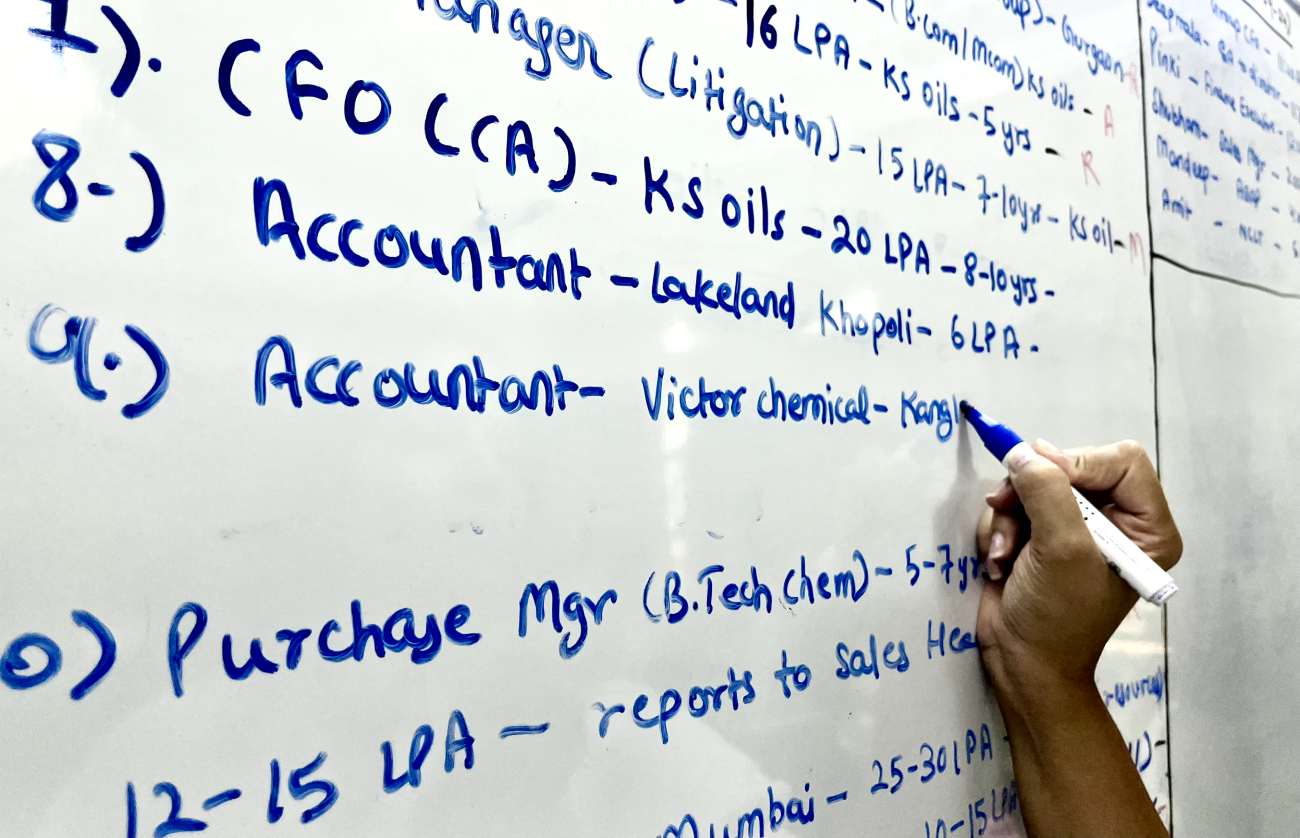 - (B.Com/Mcom) KS oils - A
- 16 LPA - KS oils - 5 yrs - R
Manager (Litigation) - 15 LPA - 7-10 yrs - KS oil - M
7). CFO (CA) - KS oils - 20 LPA - 8-10 yrs -
8-) Accountant - Lakeland Khopoli - 6 LPA -
9.) Accountant - Victor chemical - Kangl
0) Purchase Mgr (B.Tech Chem) - 5-7 yr
12-15 LPA - reports to Sales Hea
Mumbai - 25-30 LPA -
10-15 LPA
Gurgaon - R
Pinki - Finance Executive -
Shubham - Sales Mgr -
Mandeep -
Amit - NCLT -